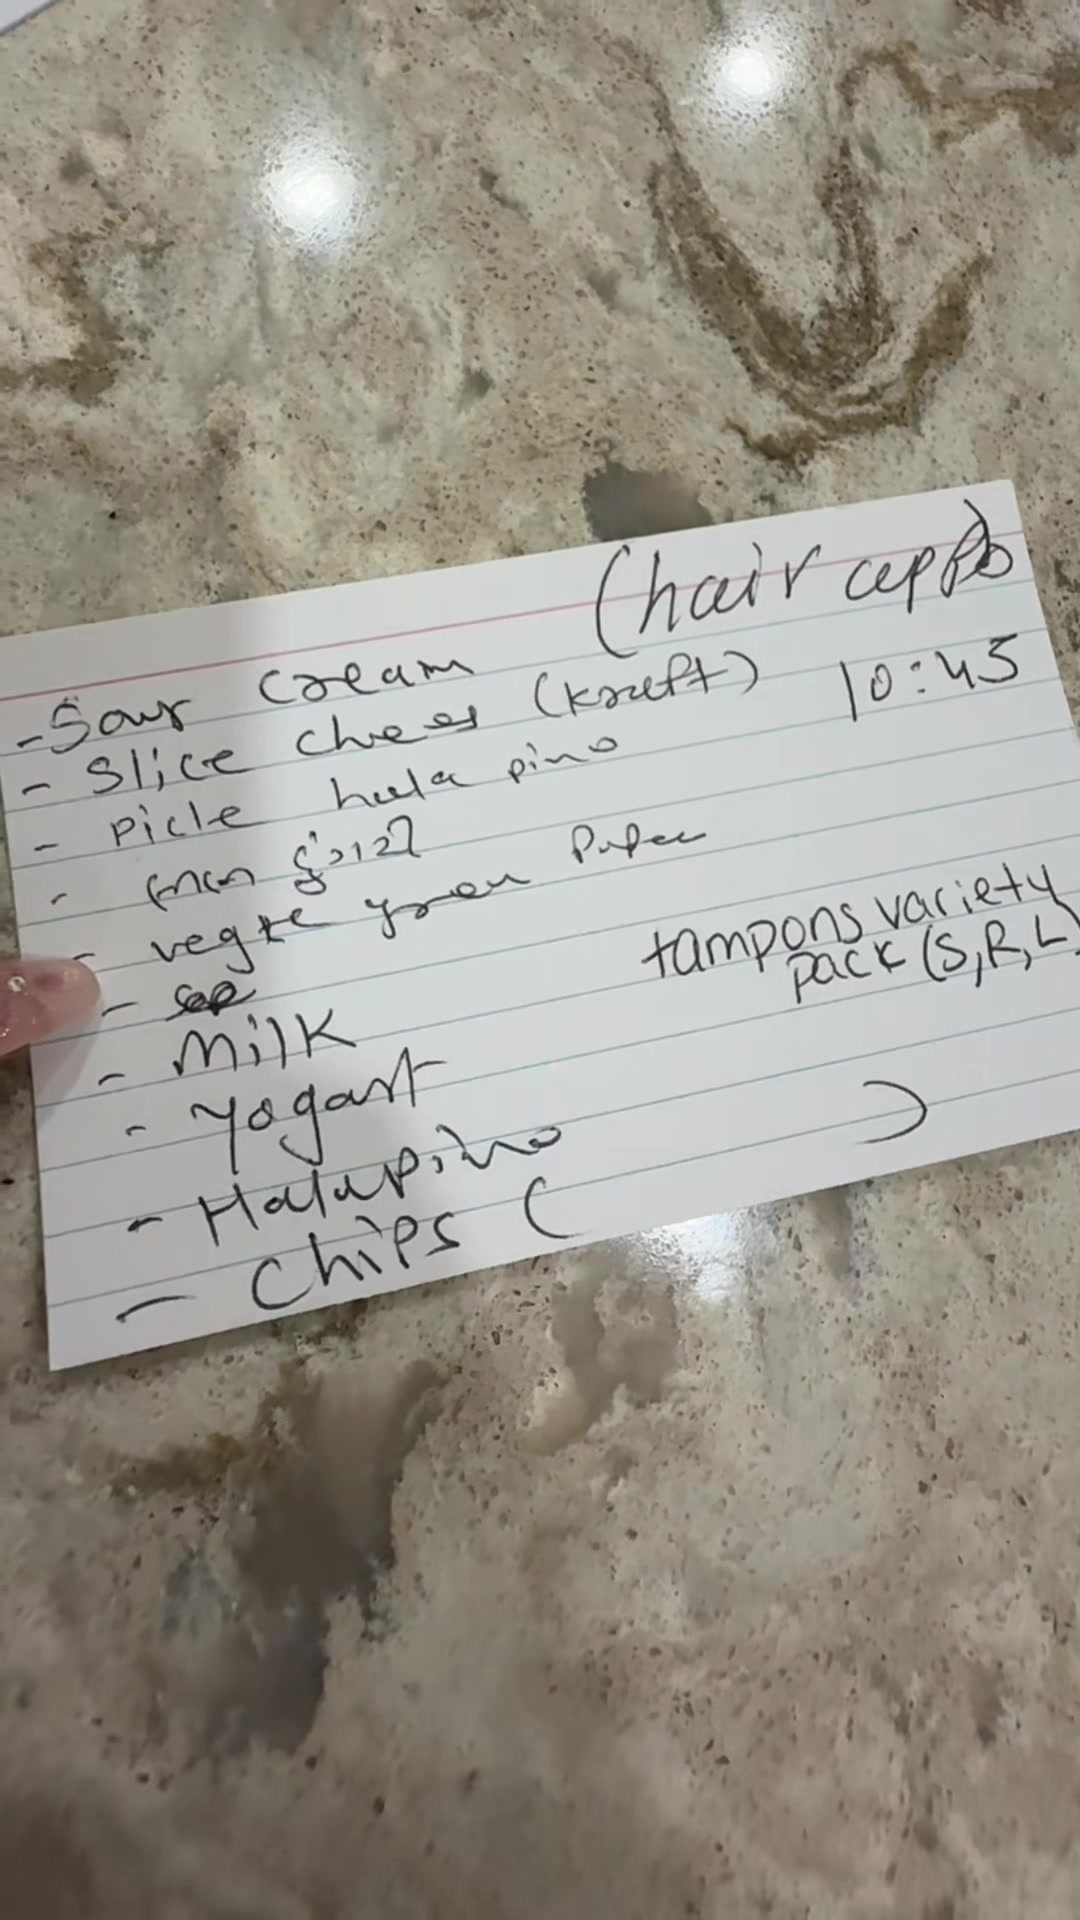 (hair appt)
10:45
- Sour cream
- Slice chees (kraft)
- Picle hala pino
-
- vegte green Peper
-
- Milk
- Yogart
- Halapino
- Chips ( )
tampons variety
pack (S, R, L)